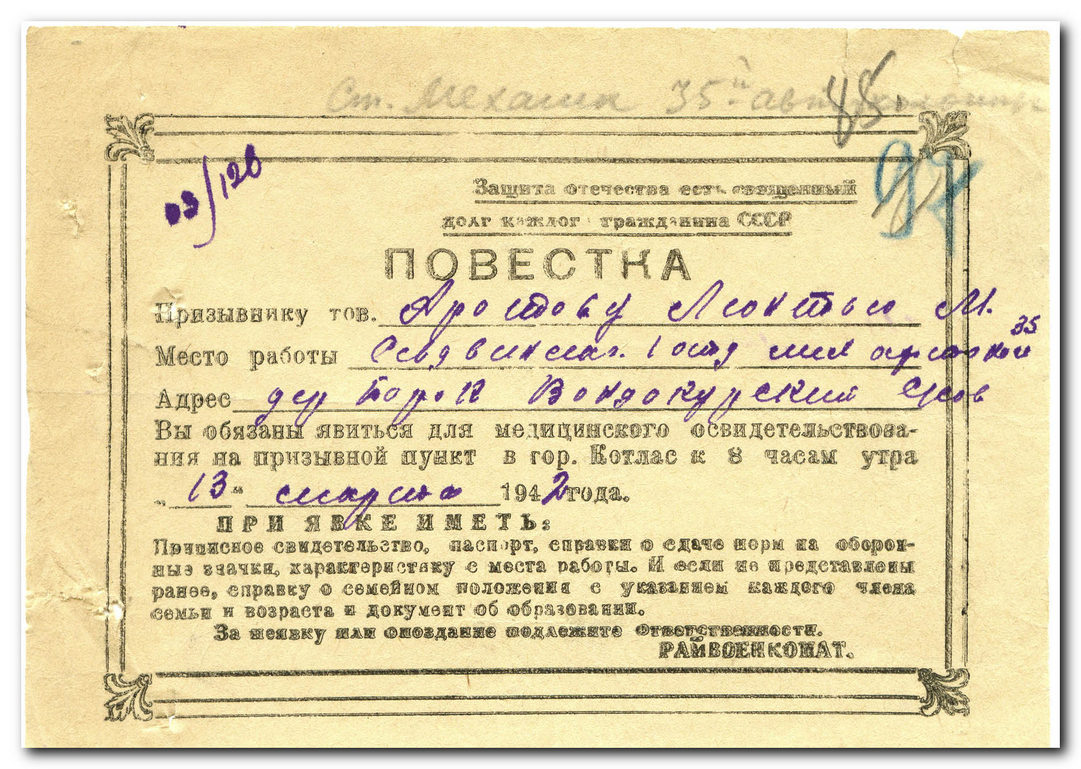 Ст. Механик 35й
48.
03/126
92
Защита отечества есть священный
долг каждого гражданина СССР
ПОВЕСТКА
Призывнику тов. Аростову Леонтью М.
Место работы 35
Адрес дер Борок Вондокурский с/сов
Вы обязаны явиться для медицинского освидетельствова-
ния на призывной пункт в гор. Котлас к 8 часам утра
„13" марта 1942 года.
ПРИ ЯВКЕ ИМЕТЬ:
Приписное свидетельство, паспорт, справки о сдаче норм на оборон-
ные значки, характеристику с места работы. И если не представлены
ранее, справку о семейном положения с указанием каждого члена
семьи и возраста и документ об образовании.
За неявку или опоздание подлежите Ответственности.
РАЙВОЕНКОМАТ.